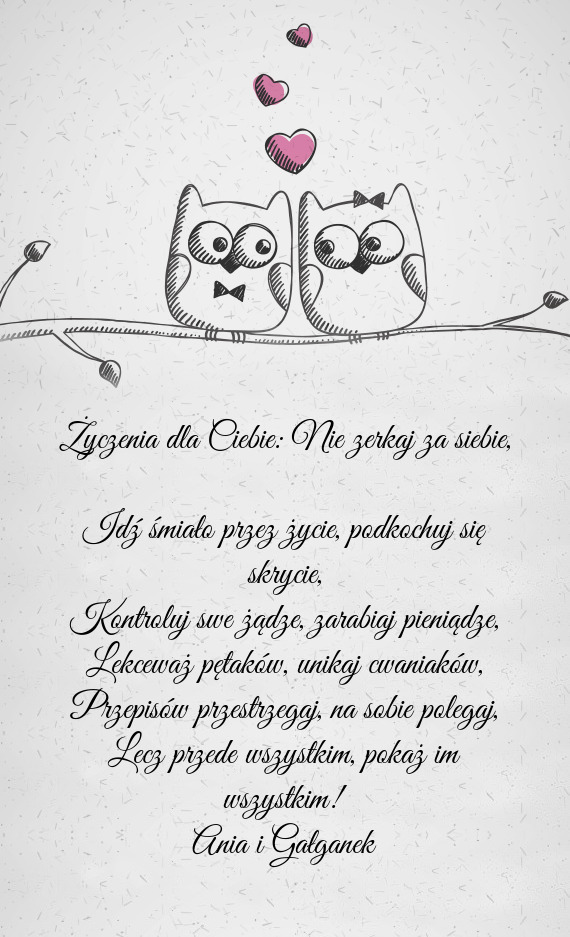 Życzenia dla Ciebie: Nie zerkaj za siebie,
Idź śmiało przez życie, podkochuj się
skrycie,
Kontroluj swe żądze, zarabiaj pieniądze,
Lekceważ pętaków, unikaj cwaniaków,
Przepisów przestrzegaj, na sobie polegaj,
Lecz przede wszystkim, pokaż im
wszystkim!
Ania i Gałganek